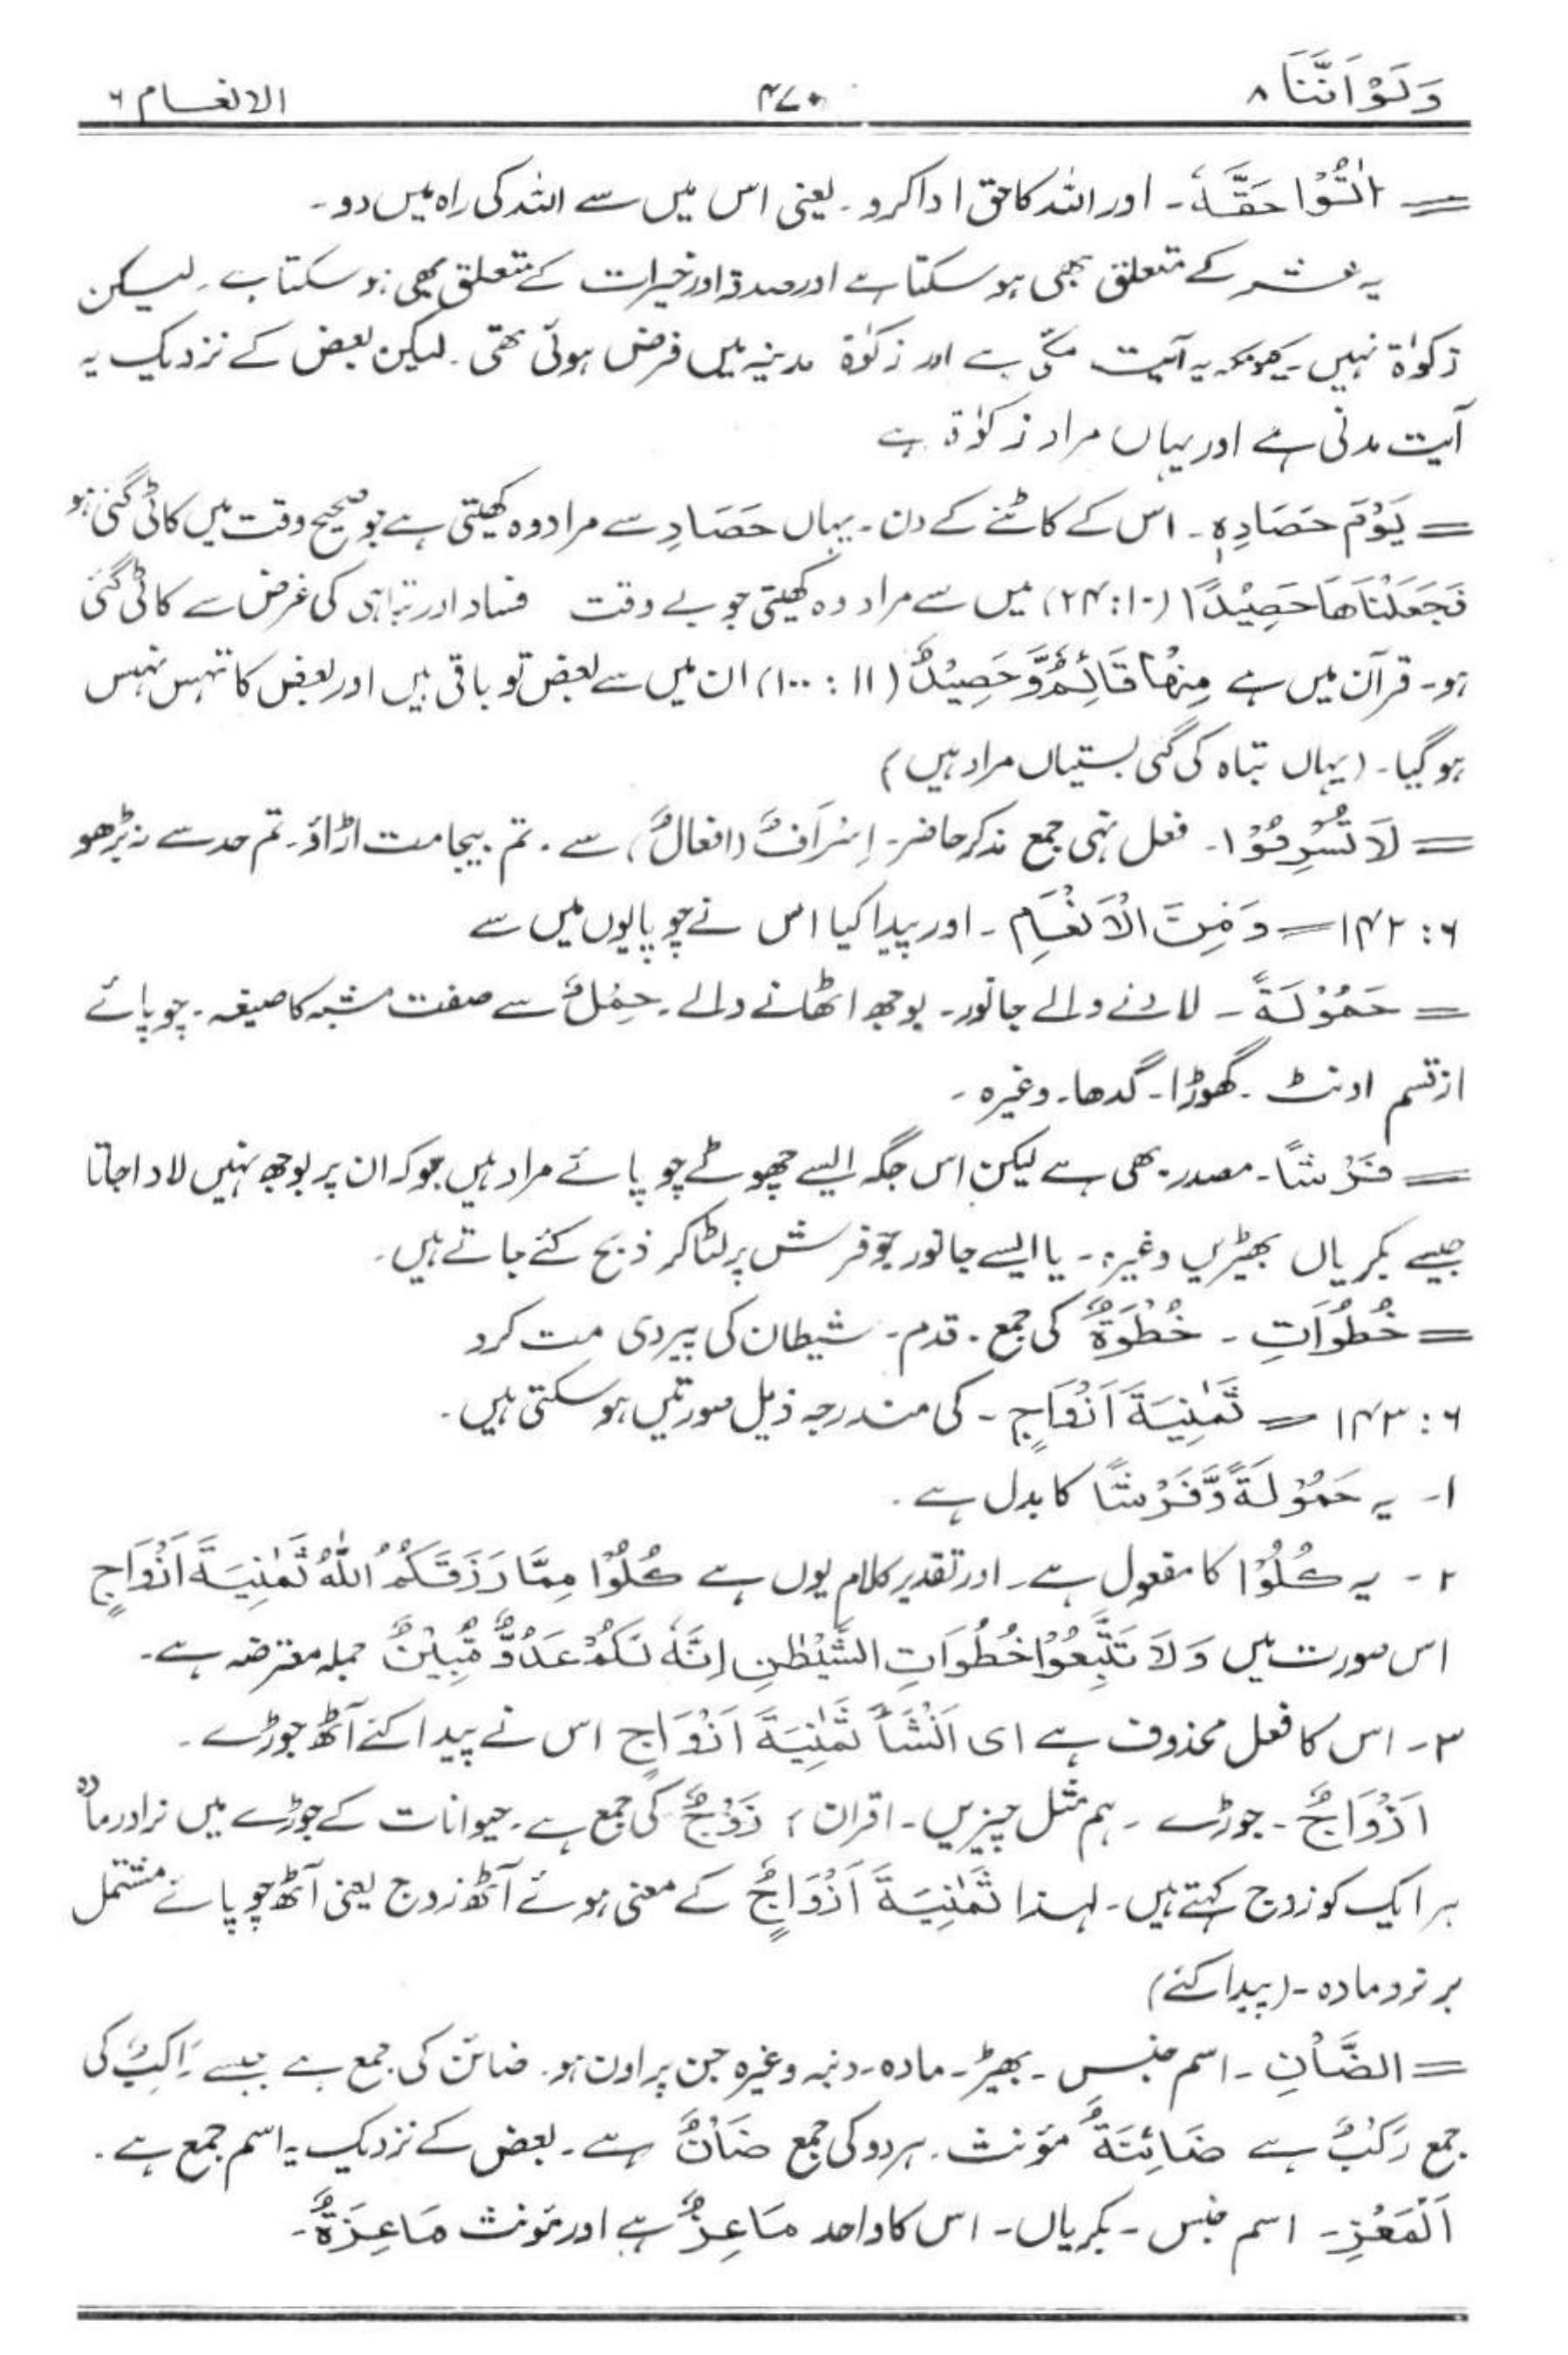 وَلَوْ اَنَّنَا ۸ ۴۷۰ الانعام ۶
= اٰتُوْا حَقَّہٗ ۔ اور اللہ کا حق ادا کرو ۔ یعنی اس میں سے اللہ کی راہ میں دو ۔
یہ عشر کے متعلق بھی ہو سکتا ہے اور صدقہ اور خیرات کے متعلق بھی ہو سکتا ہے ۔ لیسکن
زکوٰۃ نہیں ۔ کیونکہ یہ آیت مکّی ہے اور زکوٰۃ مدینہ میں فرض ہوئی تھی ۔ لیکن بعض کے نزدیک یہ
آیت مدنی ہے اور یہاں مراد زکوٰۃ ہے
= یَوْمَ حَصَادِہٖ ۔ اس کے کاٹنے کے دن ۔ یہاں حَصَادِ سے مراد وہ کھیتی ہے جو صحیح وقت میں کاٹی گئی ہو
فَجَعَلْنَاھَا حَصِیْدًا (۱۰:۲۴) میں سے مراد وہ کھیتی جو بے وقت فساد اور تباہی کی غرض سے کاٹی گئی
ہو ۔ قرآن میں ہے مِنْھَا قَائِمٌ وَّحَصِیْدٌ (۱۱ : ۱۰۰) ان میں سے بعض تو باقی ہیں اور بعض کا تہس نہس
ہو گیا ۔ (یہاں تباہ کی گئی بستیاں مراد ہیں)
= لَا تُسْرِفُوْا ۔ فعل نہی جمع مذکر حاضر ۔ اِسْرَافٌ (افعالٌ) سے ۔ تم بیجا مت اڑاؤ ۔ تم حد سے نہ بڑھو
۶ : ۱۴۲ = وَ مِنَ الْاَنْعَامِ ۔ اور پیدا کیا اس نے چوپایوں میں سے
= حَمُوْلَۃً ۔ لادنے والے جانور ۔ بوجھ اٹھانے والے ۔ حِمْلٌ سے صفت مشبہ کا صیغہ ۔ چوپائے
از قسم اونٹ ۔ گھوڑا ۔ گدھا ۔ وغیرہ ۔
= فَرْشًا ۔ مصدر بھی ہے لیکن اس جگہ ایسے چھوٹے چوپائے مراد ہیں جو کہ ان پر بوجھ نہیں لادا جاتا
جیسے بکریاں بھیڑیں وغیرہ ۔ یا ایسے جانور جو فرش پر لٹا کر ذبح کئے جاتے ہیں ۔
= خُطُوَاتِ ۔ خُطْوَۃٌ کی جمع ۔ قدم ۔ شیطان کی پیروی مت کرو
۶ : ۱۴۳ = ثَمٰنِیَۃَ اَزْوَاجٍ ۔ کی مندرجہ ذیل صورتیں ہو سکتی ہیں ۔
۱۔ یہ حَمُوْلَۃً وَّفَرْشًا کا بدل ہے ۔
۲ ۔ یہ کُلُوْا کا مفعول ہے ۔ اور تقدیر کلام یوں ہے کُلُوْا مِمَّا رَزَقَکُمُ اللّٰہُ ثَمٰنِیَۃَ اَزْوَاجٍ
اس صورت میں وَلَا تَتَّبِعُوْا خُطُوَاتِ الشَّیْطٰنِ اِنَّہٗ لَکُمْ عَدُوٌّ مُّبِیْنٌ جملہ معترضہ ہے ۔
۳ ۔ اس کا فعل محذوف ہے ای اَنْشَأَ ثَمٰنِیَۃَ اَزْوَاجٍ اس نے پیدا کئے آٹھ جوڑے ۔
اَزْوَاجٌ ۔ جوڑے ۔ ہم مثل چیزیں ۔ اقران ؛ زَوْجٌ کی جمع ہے ۔ حیوانات کے جوڑے میں نر اور مادہ
ہر ایک کو زوج کہتے ہیں ۔ لہذا ثَمٰنِیَۃَ اَزْوَاجٍ کے معنی ہوئے آٹھ زوج یعنی آٹھ چوپائے مشتمل
بر نر و مادہ ۔ (پیدا کئے)
= الضَّاْنِ ۔ اسم جنس ۔ بھیڑ ۔ مادہ ۔ دنبہ وغیرہ جن پر اون ہو ۔ ضائن کی جمع ہے جیسے رَاکِبٌ کی
جمع رَکْبٌ ہے ضَائِنَۃٌ مؤنث ۔ ہر دو کی جمع ضَاْنٌ ہے ۔ بعض کے نزدیک یہ اسم جمع ہے ۔
اَلْمَعْزِ ۔ اسم جنس ۔ بکریاں ۔ اس کا واحد مَاعِزٌ ہے اور مؤنث مَاعِزَۃٌ ۔